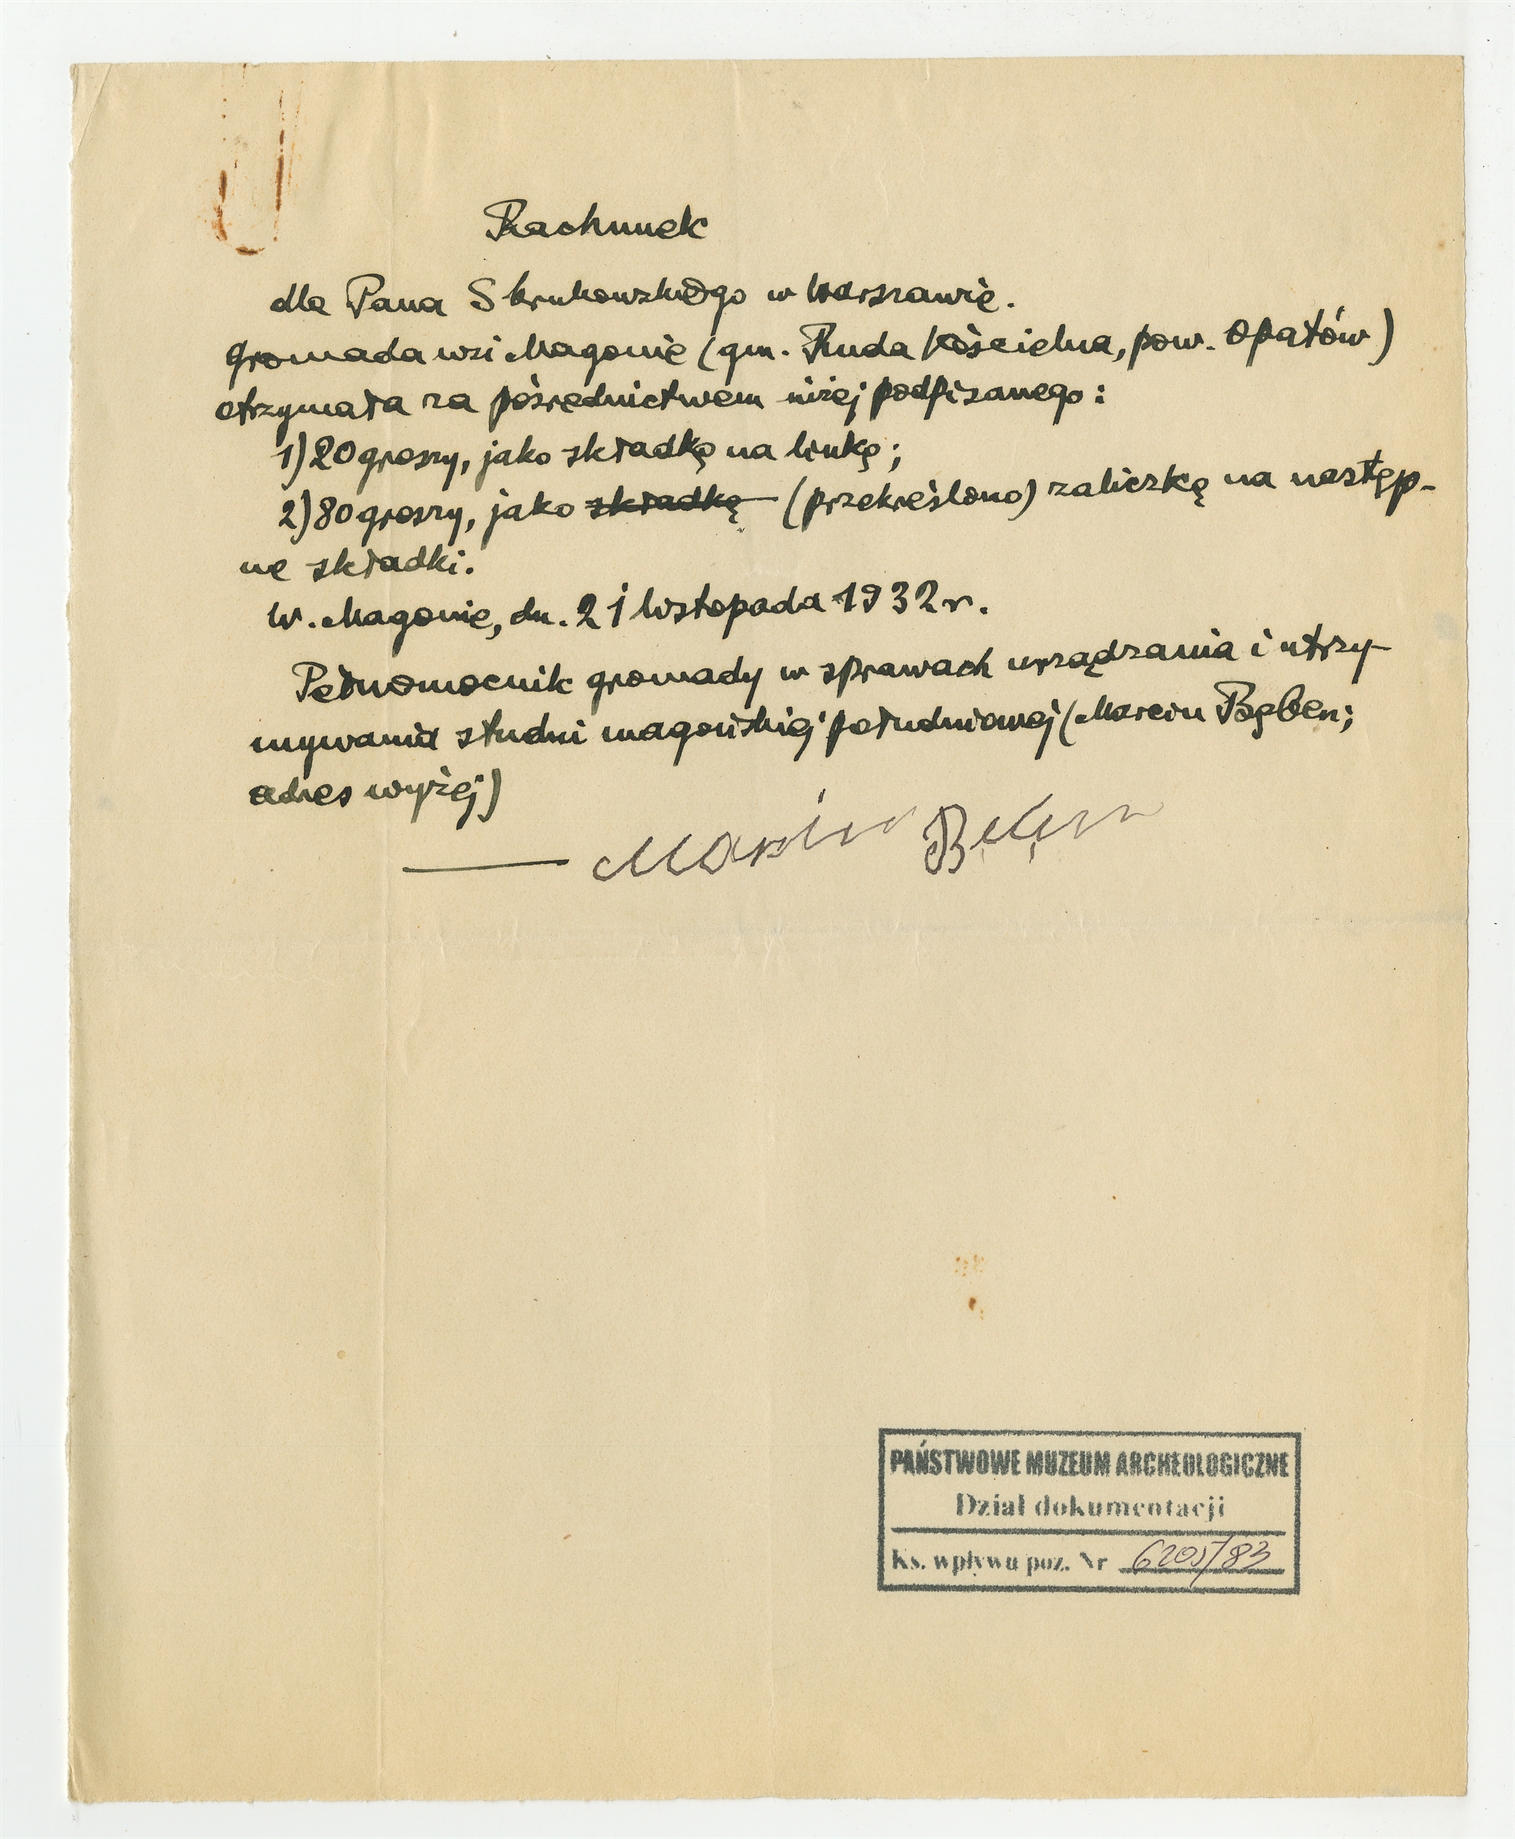 Rachunek
dla Pana Skrukowskiego w Warszawie.
gromada wsi Magonie (gm. Ruda Kościelna, pow. Opatów)
otrzymała za pośrednictwem niżej podpisanego:
1) 20 groszy, jako składkę na linkę;
2) 80 groszy, jako składkę (przekreślono) zaliczkę na następ-
ne składki.
W. Magonie, dn. 21 listopada 1932 r.
Pełnomocnik gromady w sprawach urządzania i utrzy-
mywania studni magońskiej południowej (Marcin Bęben;
adres wyżej)
Marcin
PAŃSTWOWE MUZEUM ARCHEOLOGICZNE
Dział dokumentacji
Ks. wpływu poz. Nr 6205/83